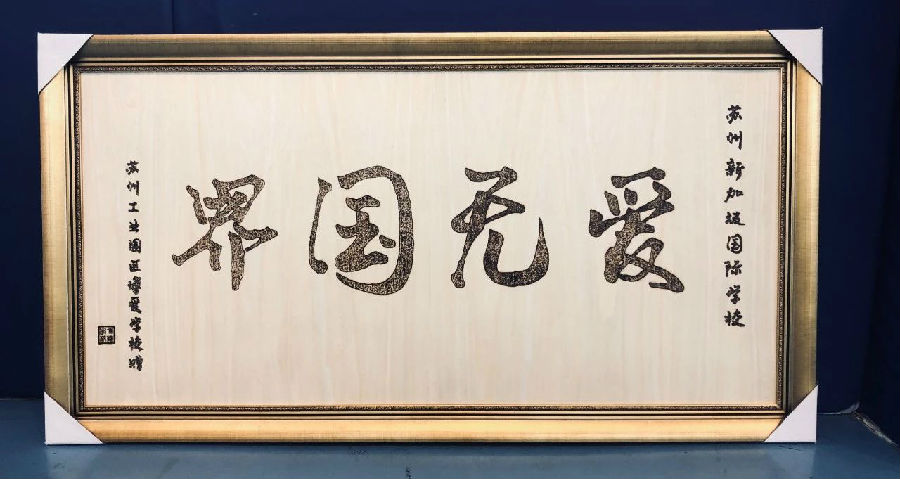 苏州新加坡国际学校
爱无国界
苏州工业园区博爱学校赠